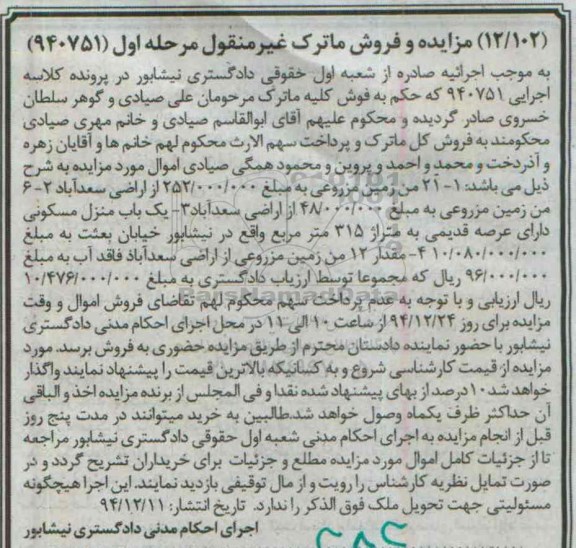 (۱۲/۱۰۲) مزایده و فروش ماترک غیرمنقول مرحله اول (۹۴۰۷۵۱)
به موجب اجرائیه صادره از شعبه اول حقوقی دادگستری نیشابور در پرونده کلاسه
اجرایی ۹۴۰۷۵۱ که حکم به فوش کلیه ماترک مرحومان علی صیادی و گوهر سلطان
خسروی صادر گردیده و محکوم علیهم آقای ابوالقاسم صیادی و خانم مهری صیادی
محکومند به فروش کل ماترک و پرداخت سهم الارث محکوم لهم خانم ها و آقایان زهره
و آذردخت و محمد و احمد و پروین و محمود همگی صیادی اموال مورد مزایده به شرح
ذیل می باشد: ۱- ۲۱ من زمین مزروعی به مبلغ ۲۵۲/۰۰۰/۰۰۰ از اراضی سعدآباد ۲- ۶
من زمین مزروعی به مبلغ ۴۸/۰۰۰/۰۰۰ از اراضی سعدآباد۳- یک باب منزل مسکونی
دارای عرصه قدیمی به متراژ ۳۱۵ متر مربع واقع در نیشابور خیابان بعثت به مبلغ
۱۰/۰۸۰/۰۰۰/۰۰۰ ۴- مقدار ۱۲ من زمین مزروعی از اراضی سعدآباد فاقد آب به مبلغ
۹۶/۰۰۰/۰۰۰ ریال که مجموعا توسط ارزیاب دادگستری به مبلغ ۱۰/۴۷۶/۰۰۰/۰۰۰
ریال ارزیابی و با توجه به عدم پرداخت سهم محکوم لهم تقاضای فروش اموال و وقت
مزایده برای روز ۹۴/۱۲/۲۴ از ساعت ۱۰ الی ۱۱ در محل اجرای احکام مدنی دادگستری
نیشابور با حضور نماینده دادستان محترم از طریق مزایده حضوری به فروش برسد. مورد
مزایده از قیمت کارشناسی شروع و به کسانیکه بالاترین قیمت را پیشنهاد نمایند واگذار
خواهد شد۱۰ درصد از بهای پیشنهاد شده نقدا و فی المجلس از برنده مزایده اخذ و الباقی
آن حداکثر ظرف یکماه وصول خواهد شد.طالبین به خرید میتوانند در مدت پنج روز
قبل از انجام مزایده به اجرای احکام مدنی شعبه اول حقوقی دادگستری نیشابور مراجعه
تا از جزئیات کامل اموال مورد مزایده مطلع و جزئیات برای خریداران تشریح گردد و در
صورت تمایل نظریه کارشناس را رویت و از مال توقیفی بازدید نمایند. این اجرا هیچگونه
مسئولیتی جهت تحویل ملک فوق الذکر را ندارد. تاریخ انتشار: ۹۴/۱۲/۱۱
اجرای احکام مدنی دادگستری نیشابور